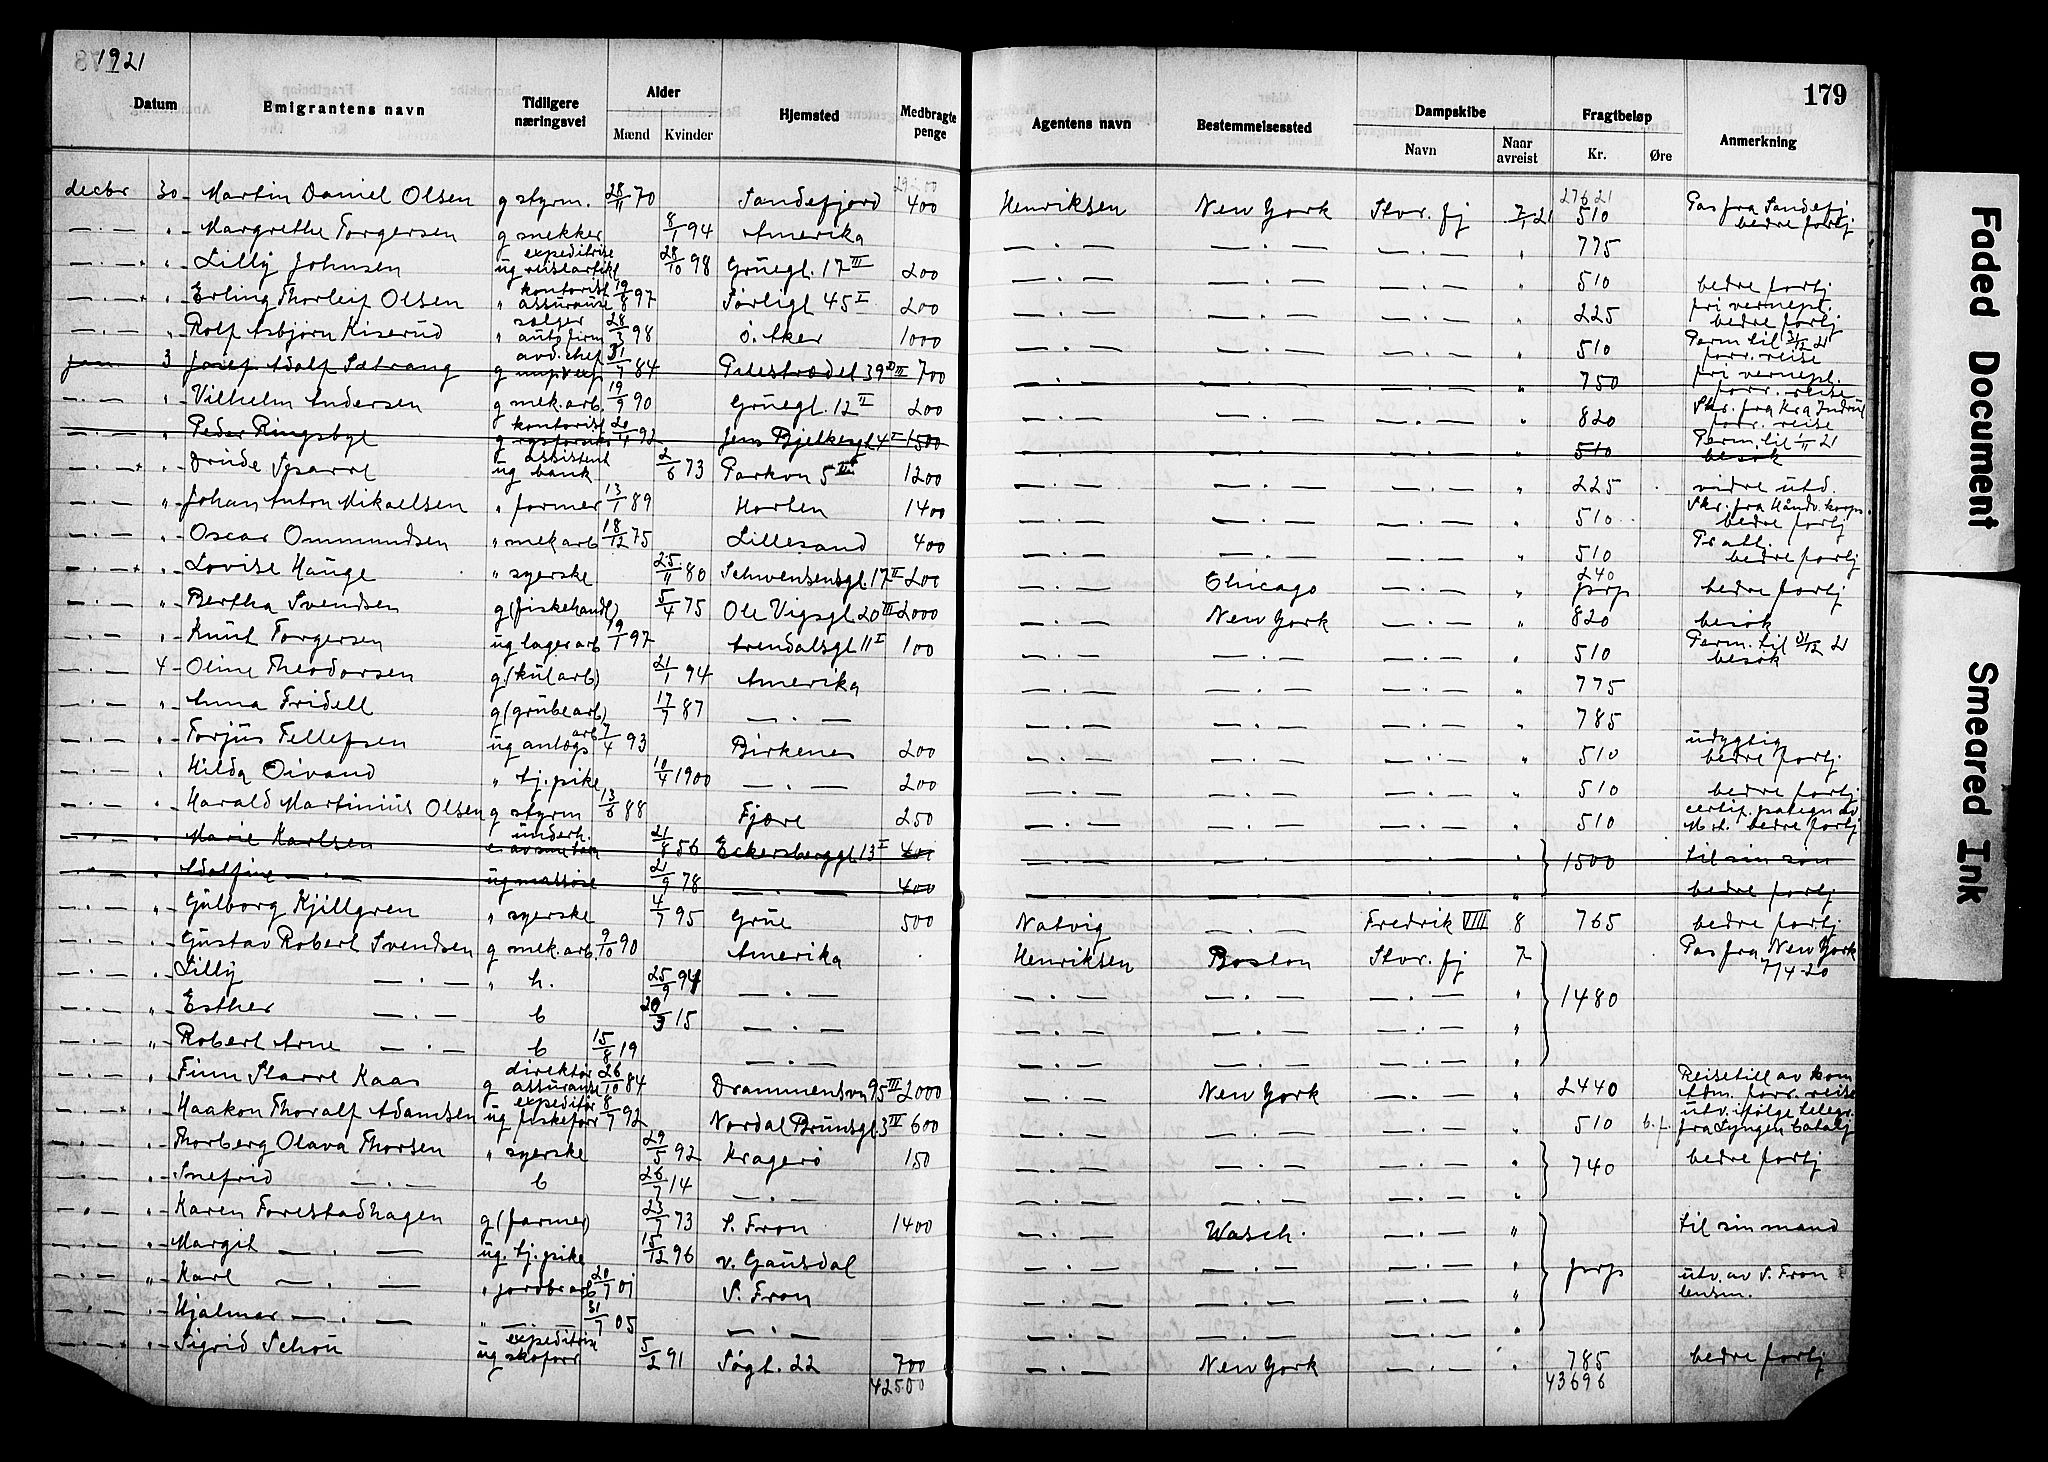 1921
179
Datum Emigrantens navn Tidligere næringsvei Alder Mænd Kvinder Hjemsted Medbragte penge Agentens navn Bestemmelsessted Dampskibe Navn Naar avreist Fragtbeløp Kr. Øre Anmerkning
27621
decbr 30 Martin Daniel Olsen g styrm. 28/11 70 Sandefjord 400 Henriksen New York Stvr. fj 7/1 21 510 Pas fra Sandefj bedre forlj
— . — " Margrethe Torgersen g snekker 8/1 94 Amerika — . — — . — — . — " 775
— . — " Lilly Johnsen ug expeditrise reiseartikl 28/10 98 Grüegt. 17 III 200 — . — — . — — . — " 510 bedre forlj
— . — " Erling Thorleif Olsen " kontorist assuranse 19/8 97 Sørligt 45 I 200 — . — — . — — . — " 225 fri vernepl. bedre forlj
— . — " Rolf Asbjørn Kiserud " selger autofirm 28/3 98 Ø. Aker 1000 — . — — . — — . — " 510 Perm til 31/12 21 forr. reise
jan 3 Josef Adolf Satrang g avd. chef 31/7 84 Pilestrædet 39 III 700 — . — — . — — . — " 750 fri vernepl. forr. reise
— . — " Vilhelm Andersen g mek. arb. 19/9 90 Grüegt. 12 II 200 — . — — . — — . — " 820 Skr. fra Kra Indrul forr. reise
— . — " Peder Ringsbyt g kontorist 20/4 92 Jens Bjelkesgt 4 I 1500 — . — — . — — . — " 510 Perm. til 1/11 21 besøk
— . — " Drude Sparre ug assistent bank 2/6 73 Parkvn 5 1200 — . — — . — — . — " 225 vidre utd.
— . — " Johan Anton Mikaelsen " former 13/1 89 Horten 1400 — . — — . — — . — " 510 Skr. fra Håndv. korps bedre forlj
— . — " Oscar Ommundsen " mek arb 18/12 75 Lillesand 400 — . — — . — — . — " 510 Pr att. bedre forlj
— . — " Lovise Hauge " syerske 25/11 80 Schwensensgt. 17 II 200 — . — Chicago — . — " 240 prp bedre forlj
— . — " Bertha Svendsen g (fiskehandl) 5/4 75 Ole Vigsgt 20 III 2000 — . — New York — . — " 820 besøk
— . — " Knut Torgersen ug lager arb 19/1 97 Arendalsgt 11 I 100 — . — — . — — . — " 510 Perm. til 31/12 21 besøk
— . — 4 Oline Theodorsen g (kul arb) 21/1 94 Amerika — . — — . — — . — " 775
— . — " Anna Fridell g (grube arb) 17/7 87 — . — — . — — . — — . — " 785
— . — " Torjus Tellefsen ug anlegs arb 7/4 93 Birkenes 200 — . — — . — — . — " 510 udygtig bedre forlj
— . — " Hilda Oivand " tj. pike 10/4 1900 — . — 200 — . — — . — — . — " 510 bedre forlj
— . — " Harald Martinius Olsen g styrm 13/6 88 Fjære 250 — . — — . — — . — " 510 certif. pategn av M. d. bedre forlj
— . — " Marie Karlsen e underh. av sine barn 21/8 56 Eckersberggt 13 I 400 — . — — . — — . — " 1500 til sin søn
— . — " Adolfine — . — ug massøse 21/9 78 — . — 400 — . — — . — — . — " bedre forlj
— . — " Gulborg Kjillgren " syerske 4/7 95 Grue 500 Natvig — . — Fredrik VIII 8 765 bedre forlj
— . — " Gustav Robert Svendsen g mek. arb. 9/10 90 Amerika Henriksen Boston Stvr. fj 7 Pas fra New York 7/4 20
— . — " Lilly — . — " h. 25/9 94 — . — — . — — . — — . — " 1480
— . — " Esther — . — b 20/3 15 — . — — . — — . — — . — "
— . — " Robert Arne — . — b 15/8 19 — . — — . — — . — — . — "
— . — " Finn Starre Kaas g direktør assuranse 26/10 84 Drammensvn 95 III 2000 — . — New York — . — " 2440 Reisetill av kom Adm. forr. reise
— . — " Haakon Thoralf Adamsen ug expeditør fiskeforr 8/7 92 Nordal Brunsgt 3 IV 600 — . — — . — — . — " 510 b. f. utv. ifølge telegr. fra Lyngen batalj
— . — " Thorberg Olava Thorsen " syerske 29/5 92 Kragerø 150 — . — — . — — . — " 740 bedre forlj
— . — " Snefrid — . — b 26/7 14 — . — — . — — . — — . — "
— . — " Karen Forestadhagen g (farmer) 23/7 73 S. Fron 1400 — . — Wasch. — . — " til sin mand
— . — " Margit — . — ug. tj. pike 15/12 96 v. Gausdal — . — — . — — . — " prp
— . — " Karl — . — " jordbr arb 20/7 01 S. Fron — . — — . — — . — " utv. av S. Fron lensm.
— . — " Hjalmar — . — " — . — 31/7 05 — . — — . — — . — — . — "
— . — " Sigrid Schou ug expeditrise skoforr 5/2 91 Søgt. 22 700 — . — New York — . — " 785 bedre forlj
42500 43696
Faded Document
Smeared Ink